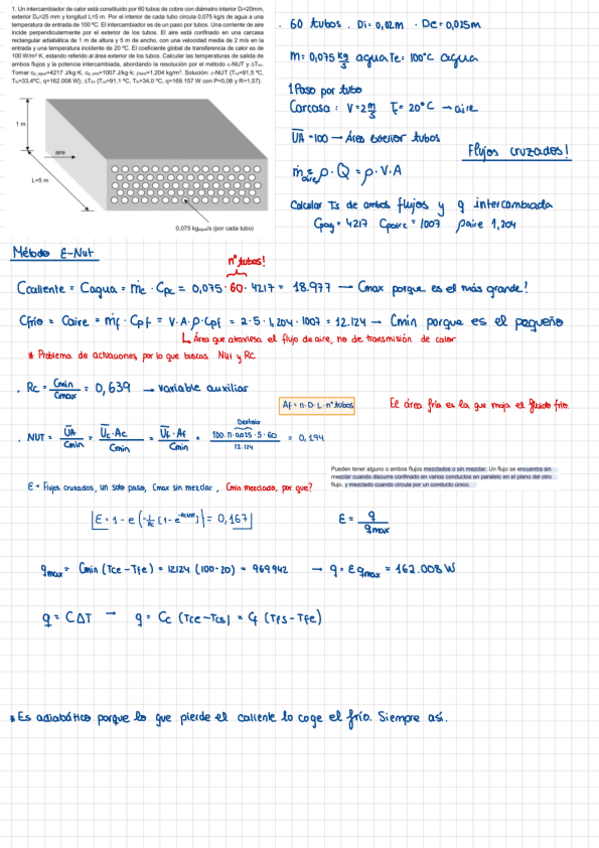 1. Un intercambiador de calor está constituido por 60 tubos de cobre con diámetro interior Di=20mm,
exterior De=25 mm y longitud L=5 m. Por el interior de cada tubo circula 0,075 kg/s de agua a una
temperatura de entrada de 100 ºC. El intercambiador es de un paso por tubos. Una corriente de aire
incide perpendicularmente por el exterior de los tubos. El aire está confinado en una carcasa
rectangular adiabática de 1 m de altura y 5 m de ancho, con una velocidad media de 2 m/s en la
entrada y una temperatura incidente de 20 ºC. El coeficiente global de transferencia de calor es de
100 W/m²·K, estando referido al área exterior de los tubos. Calcular las temperaturas de salida de
ambos flujos y la potencia intercambiada, abordando la resolución por el método ε-NUT y ΔTlm.
Tomar cp,agua=4217 J/kg·K, cp,aire=1007 J/kg·K; ρaire=1,204 kg/m³. Solución: ε-NUT (Tcs=91,5 ºC,
Tfs=33,4ºC, q=162.008 W); ΔTlm (Tcs=91,1 ºC, Tfs=34,0 ºC, q=169.157 W con P=0,08 y R=1,57).
1 m
aire
L=5 m
0,075 kgagua/s (por cada tubo)
. 60 tubos . Di= 0,02m . De= 0,025m
ṁ= 0,075 kg/s agua Te: 100°C agua
1 Paso por tubo
Carcasa : V=2 m/s Te= 20°C → aire
UA =100 → Área exterior tubos
Flujos cruzados!
ṁaire= ρ · Q = ρ · V · A
Calcular Ts de ambos flujos y q intercambiada
Cpag= 4217 Cpaire= 1007 ρaire 1,204
Método ε-Nut
nº tubos!
Ccaliente = Cagua = ṁc · Cpc = 0,075 · 60 · 4217 = 18.977 → Cmax porque es el más grande!
Cfrío = Caire = ṁf · Cpf = V · A · ρ · Cpf = 2 · 5 · 1,204 · 1007 = 12.124 → Cmin porque es el pequeño
Área que atraviesa el flujo de aire, no de transmisión de calor
* Problema de actuaciones, por lo que buscas Nut y Rc
. Rc = Cmin/Cmax = 0,639 → variable auxiliar
Af = π · D · L · nº tubos
El área fría es la que moja el fluido frío.
. NUT = UA/Cmin = Uc·Ac/Cmin = Uf·Af/Cmin = 100·π·0,025·5·60/12.124 = 0,194
Pueden tener alguno o ambos flujos mezclados o sin mezclar. Un flujo se encuentra sin
mezclar cuando discurre confinado en varios conductos en paralelo en el plano del otro
flujo, y mezclado cuando circula por un conducto único.
ε → Flujos cruzados, un solo paso, Cmax sin mezclar , Cmin mezclado, por que?
ε = 1 - e (-1/Rc [1-e^-Rc·Nut]) = 0,167
ε = q/qmax
qmax = Cmin (Tce - Tfe) = 12124 (100-20) = 969942 → q = ε qmax = 162.008 W
q = CΔT → q = Cc (Tce-Tcs) = Cf (Tfs-Tfe)
* Es adiabático porque lo que pierde el caliente lo coge el frío. Siempre así.